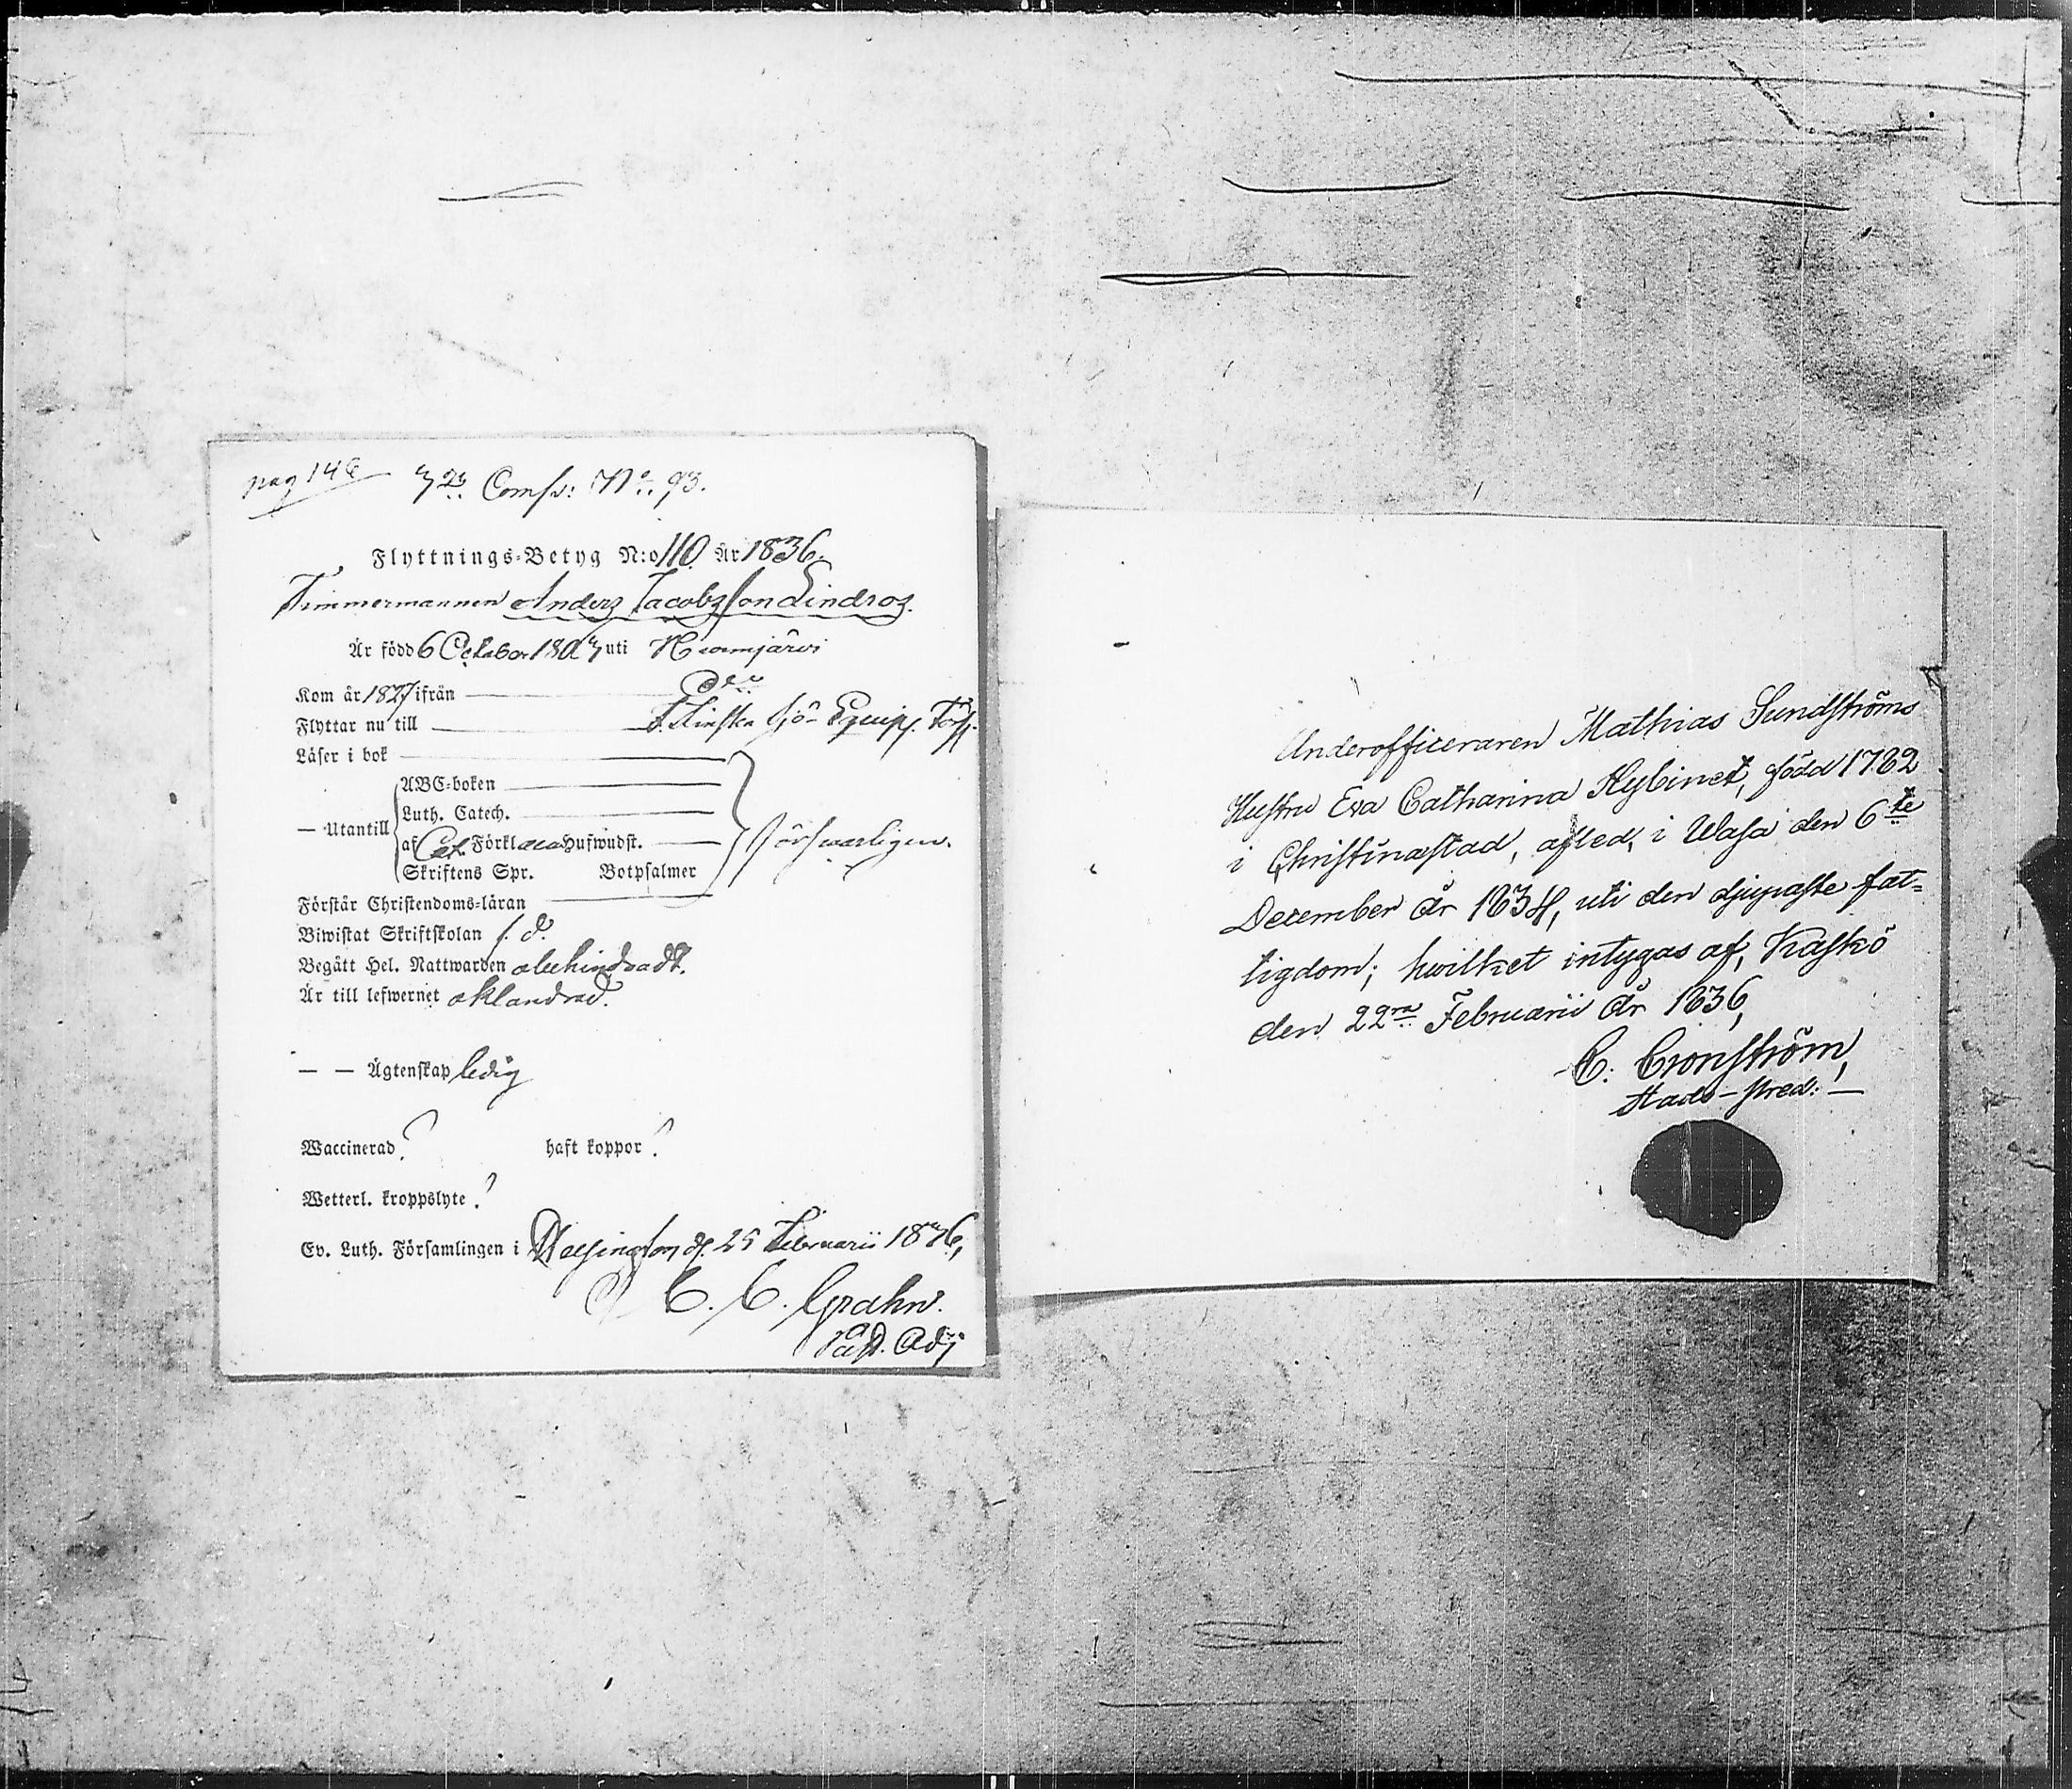 pag 146 3dje Comp: No. 93.
Flyttnings-Betyg N:o 110 År 1836.
Timmermannen Anders Jacobsson Lindros.
Är född 6 October 1803 uti
Kom år 1827 ifrån
Flyttar nu till Finska Sjö-Equip.
Läser i bok
— Utantill
ABC-boken
Luth. Catech.
af Cat. Förklar. Hufwudst. förswarligen.
Skriftens Spr. Botpsalmer
Förstår Christendoms-läran
Biwistat Skriftskolan s. d.
Begått Hel. Nattwarden obehindradt.
Är till lefwernet oklandrad.
— — Ägtenskap ledig
Waccinerad? haft koppor?
Wetterl. kroppslyte?
Ev. Luth. Församlingen i Helsingfors d. 25 Februarii 1836,
C. C. Grahn.
Past. Adj
Underofficeraren Mathias Sundströms
Hustru Eva Catharina Nybinet, född 1782
i Christinæstad, afled, i Wasa den 6te
December År 1834, uti den djupaste fat=
tigdom; hwilket intygas af, Kaskö
den 22ra Februarii År 1836,
C. Cronström,
Stads-pred: —